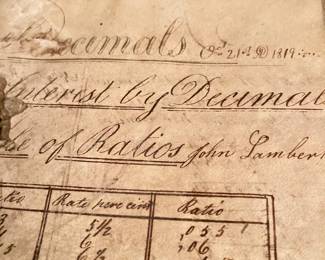 Decimals Octr 21st 1819
Interest by Decimal
of Ratios John Lambert
Rate per cent Ratio
5½ ,055
6 ,06
6½